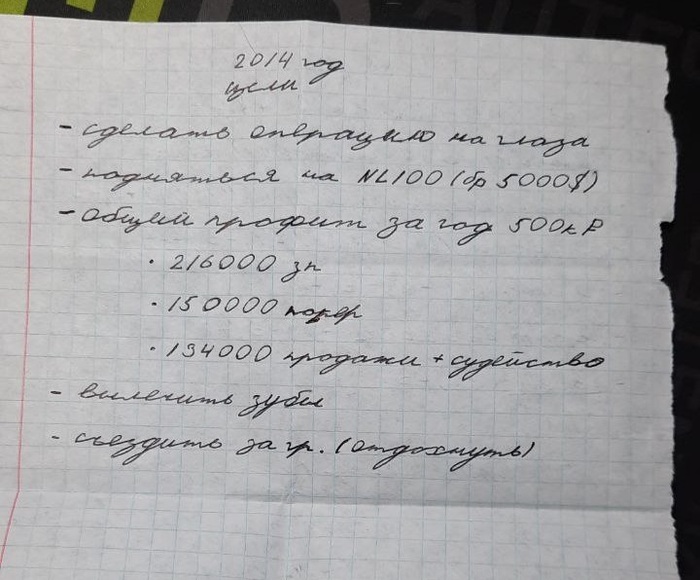 2014 год
цели
- сделать операцию на глаза
- подняться на NL100 (бр 5000$)
- общий профит за год 500к Р
· 216000 зп
· 150000 покер
· 134000 продажи + судейство
- вылечить зубы
- съездить за гр. (отдохнуть)